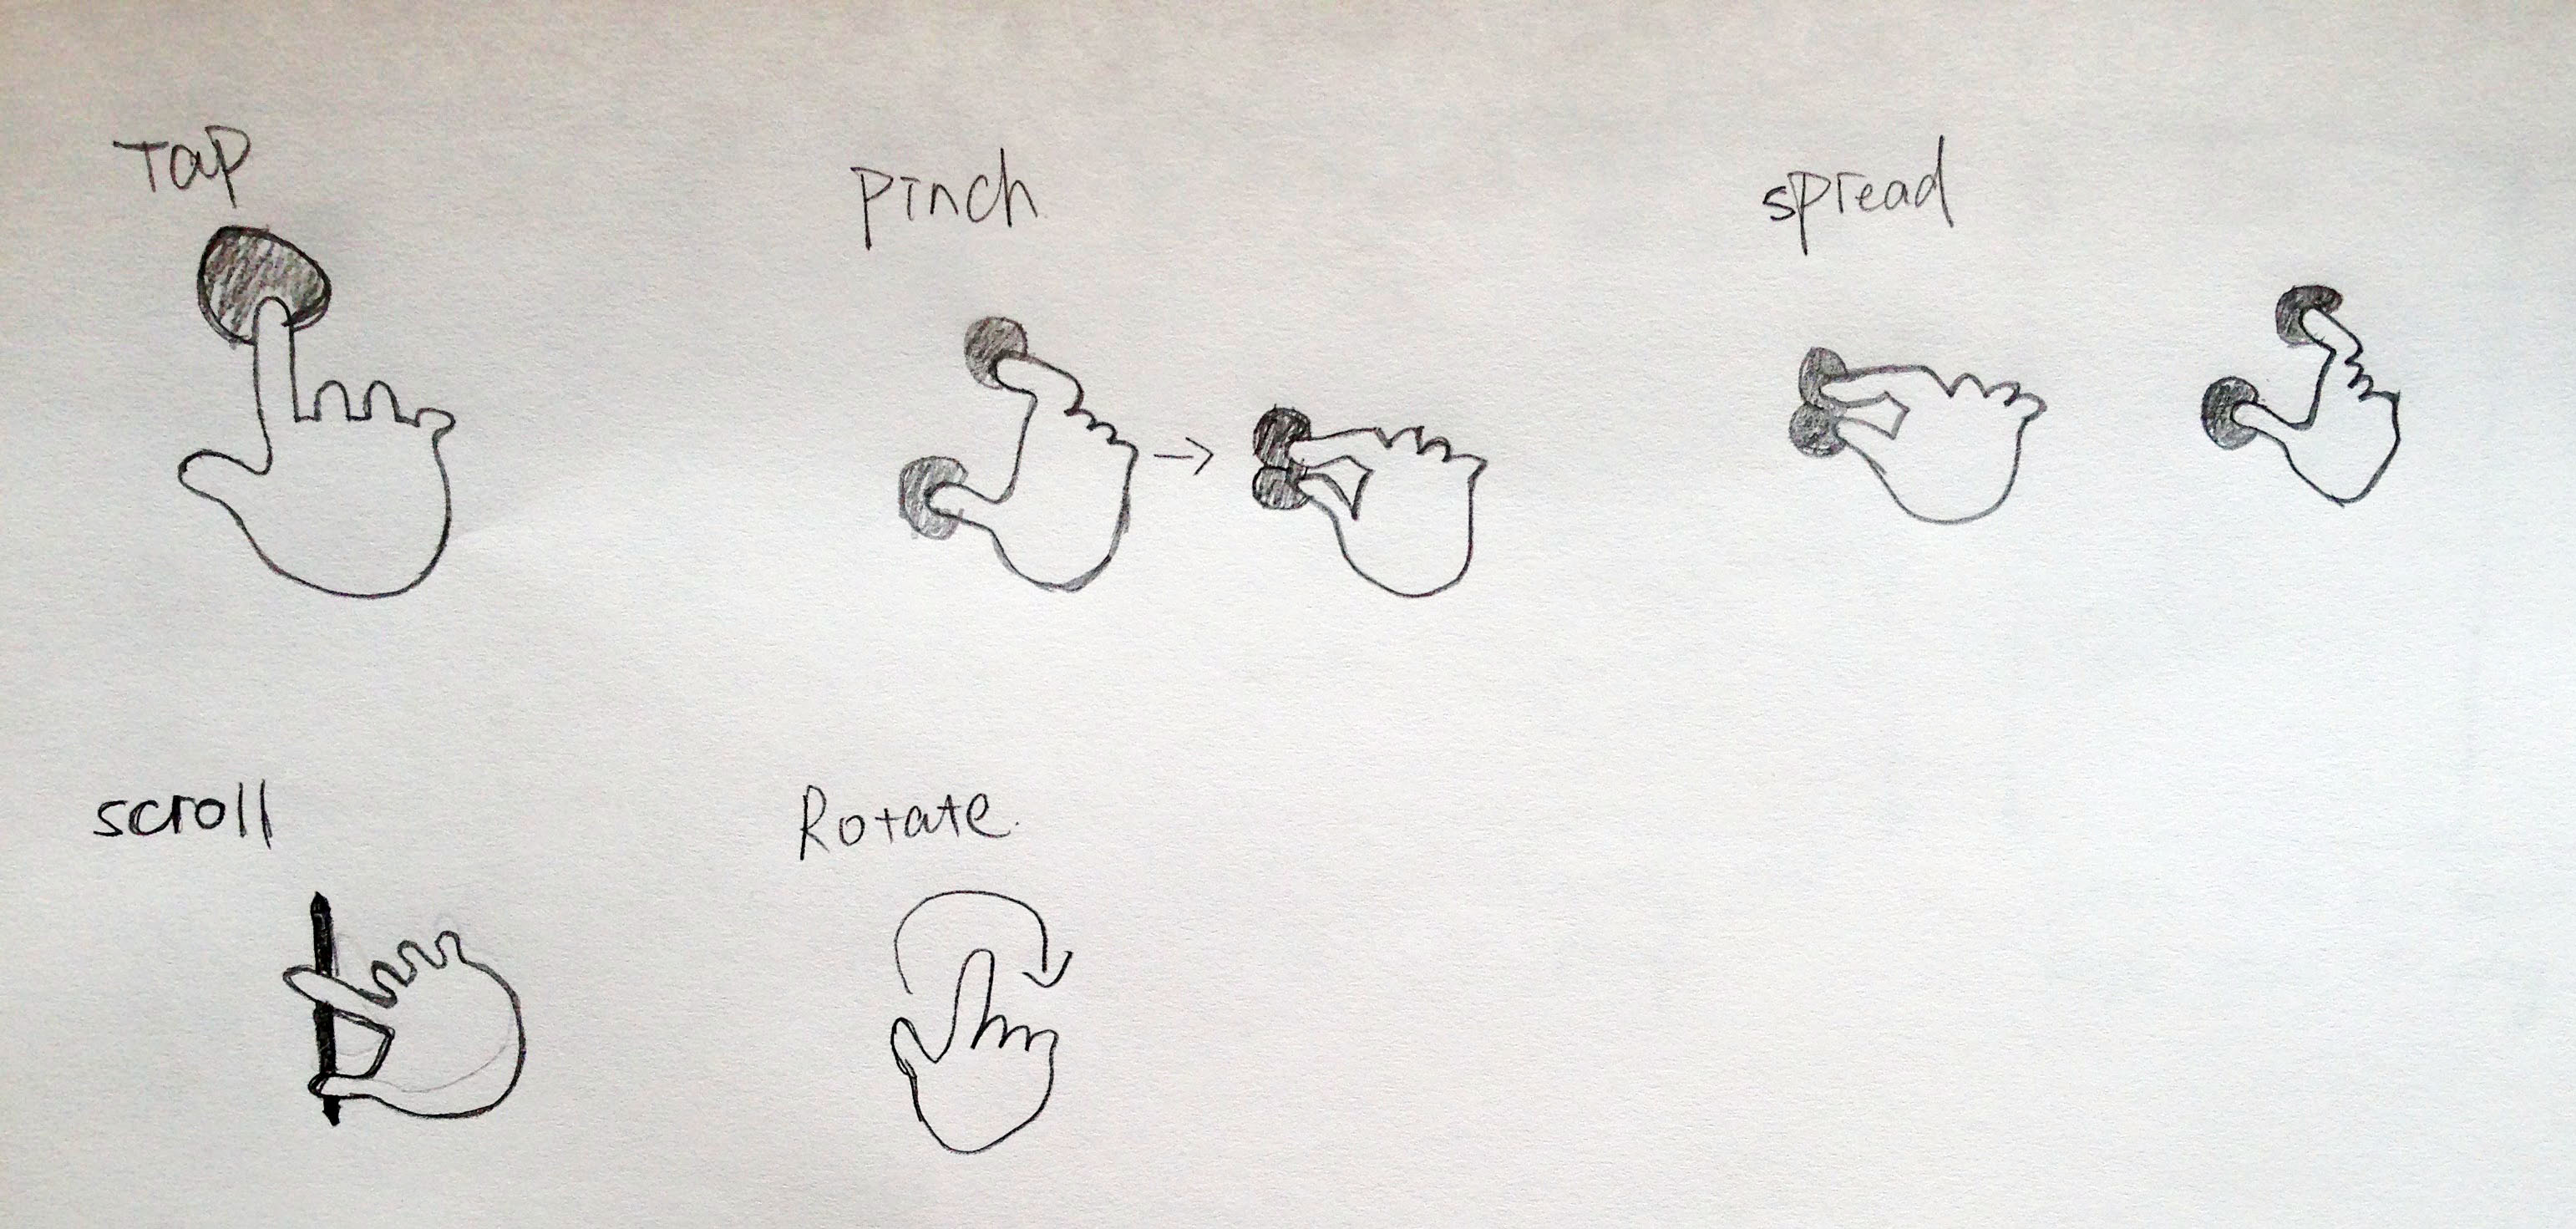 Tap
Pinch
spread
scroll
Rotate